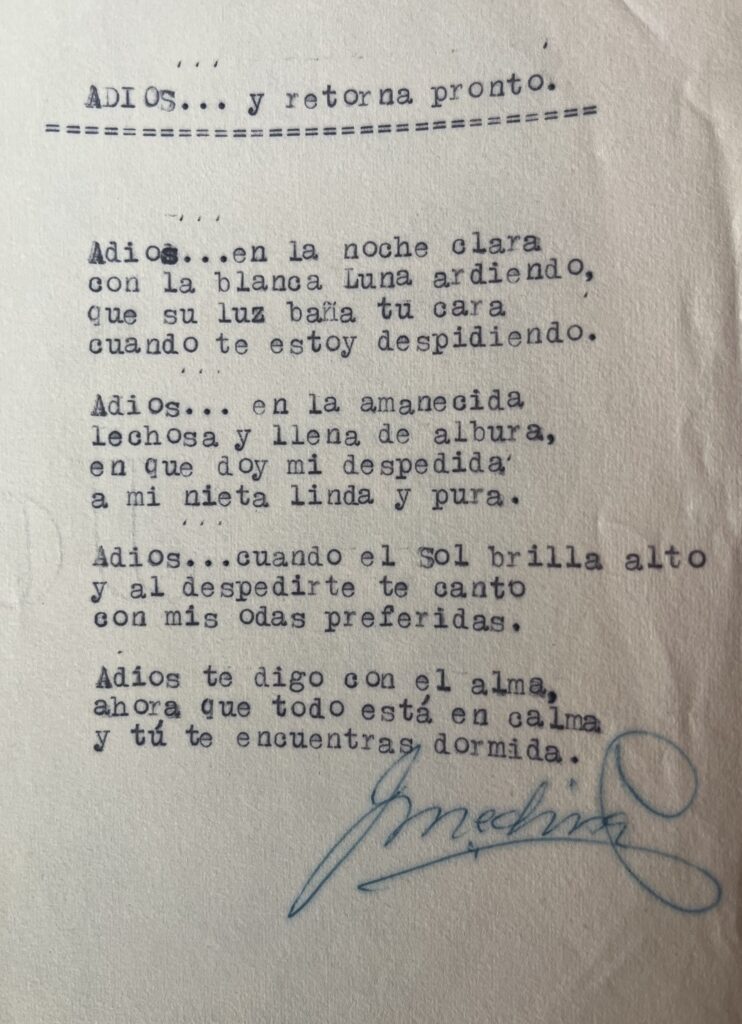 ADIOS... y retorna pronto.
==============================
Adios...en la noche clara
con la blanca Luna ardiendo,
que su luz baña tu cara
cuando te estoy despidiendo.
Adios... en la amanecida
lechosa y llena de albura,
en que doy mi despedida
a mi nieta linda y pura.
Adios...cuando el Sol brilla alto
y al despedirte te canto
con mis odas preferidas.
Adios te digo con el alma,
ahora que todo está en calma
y tú te encuentras dormida.
JMedina